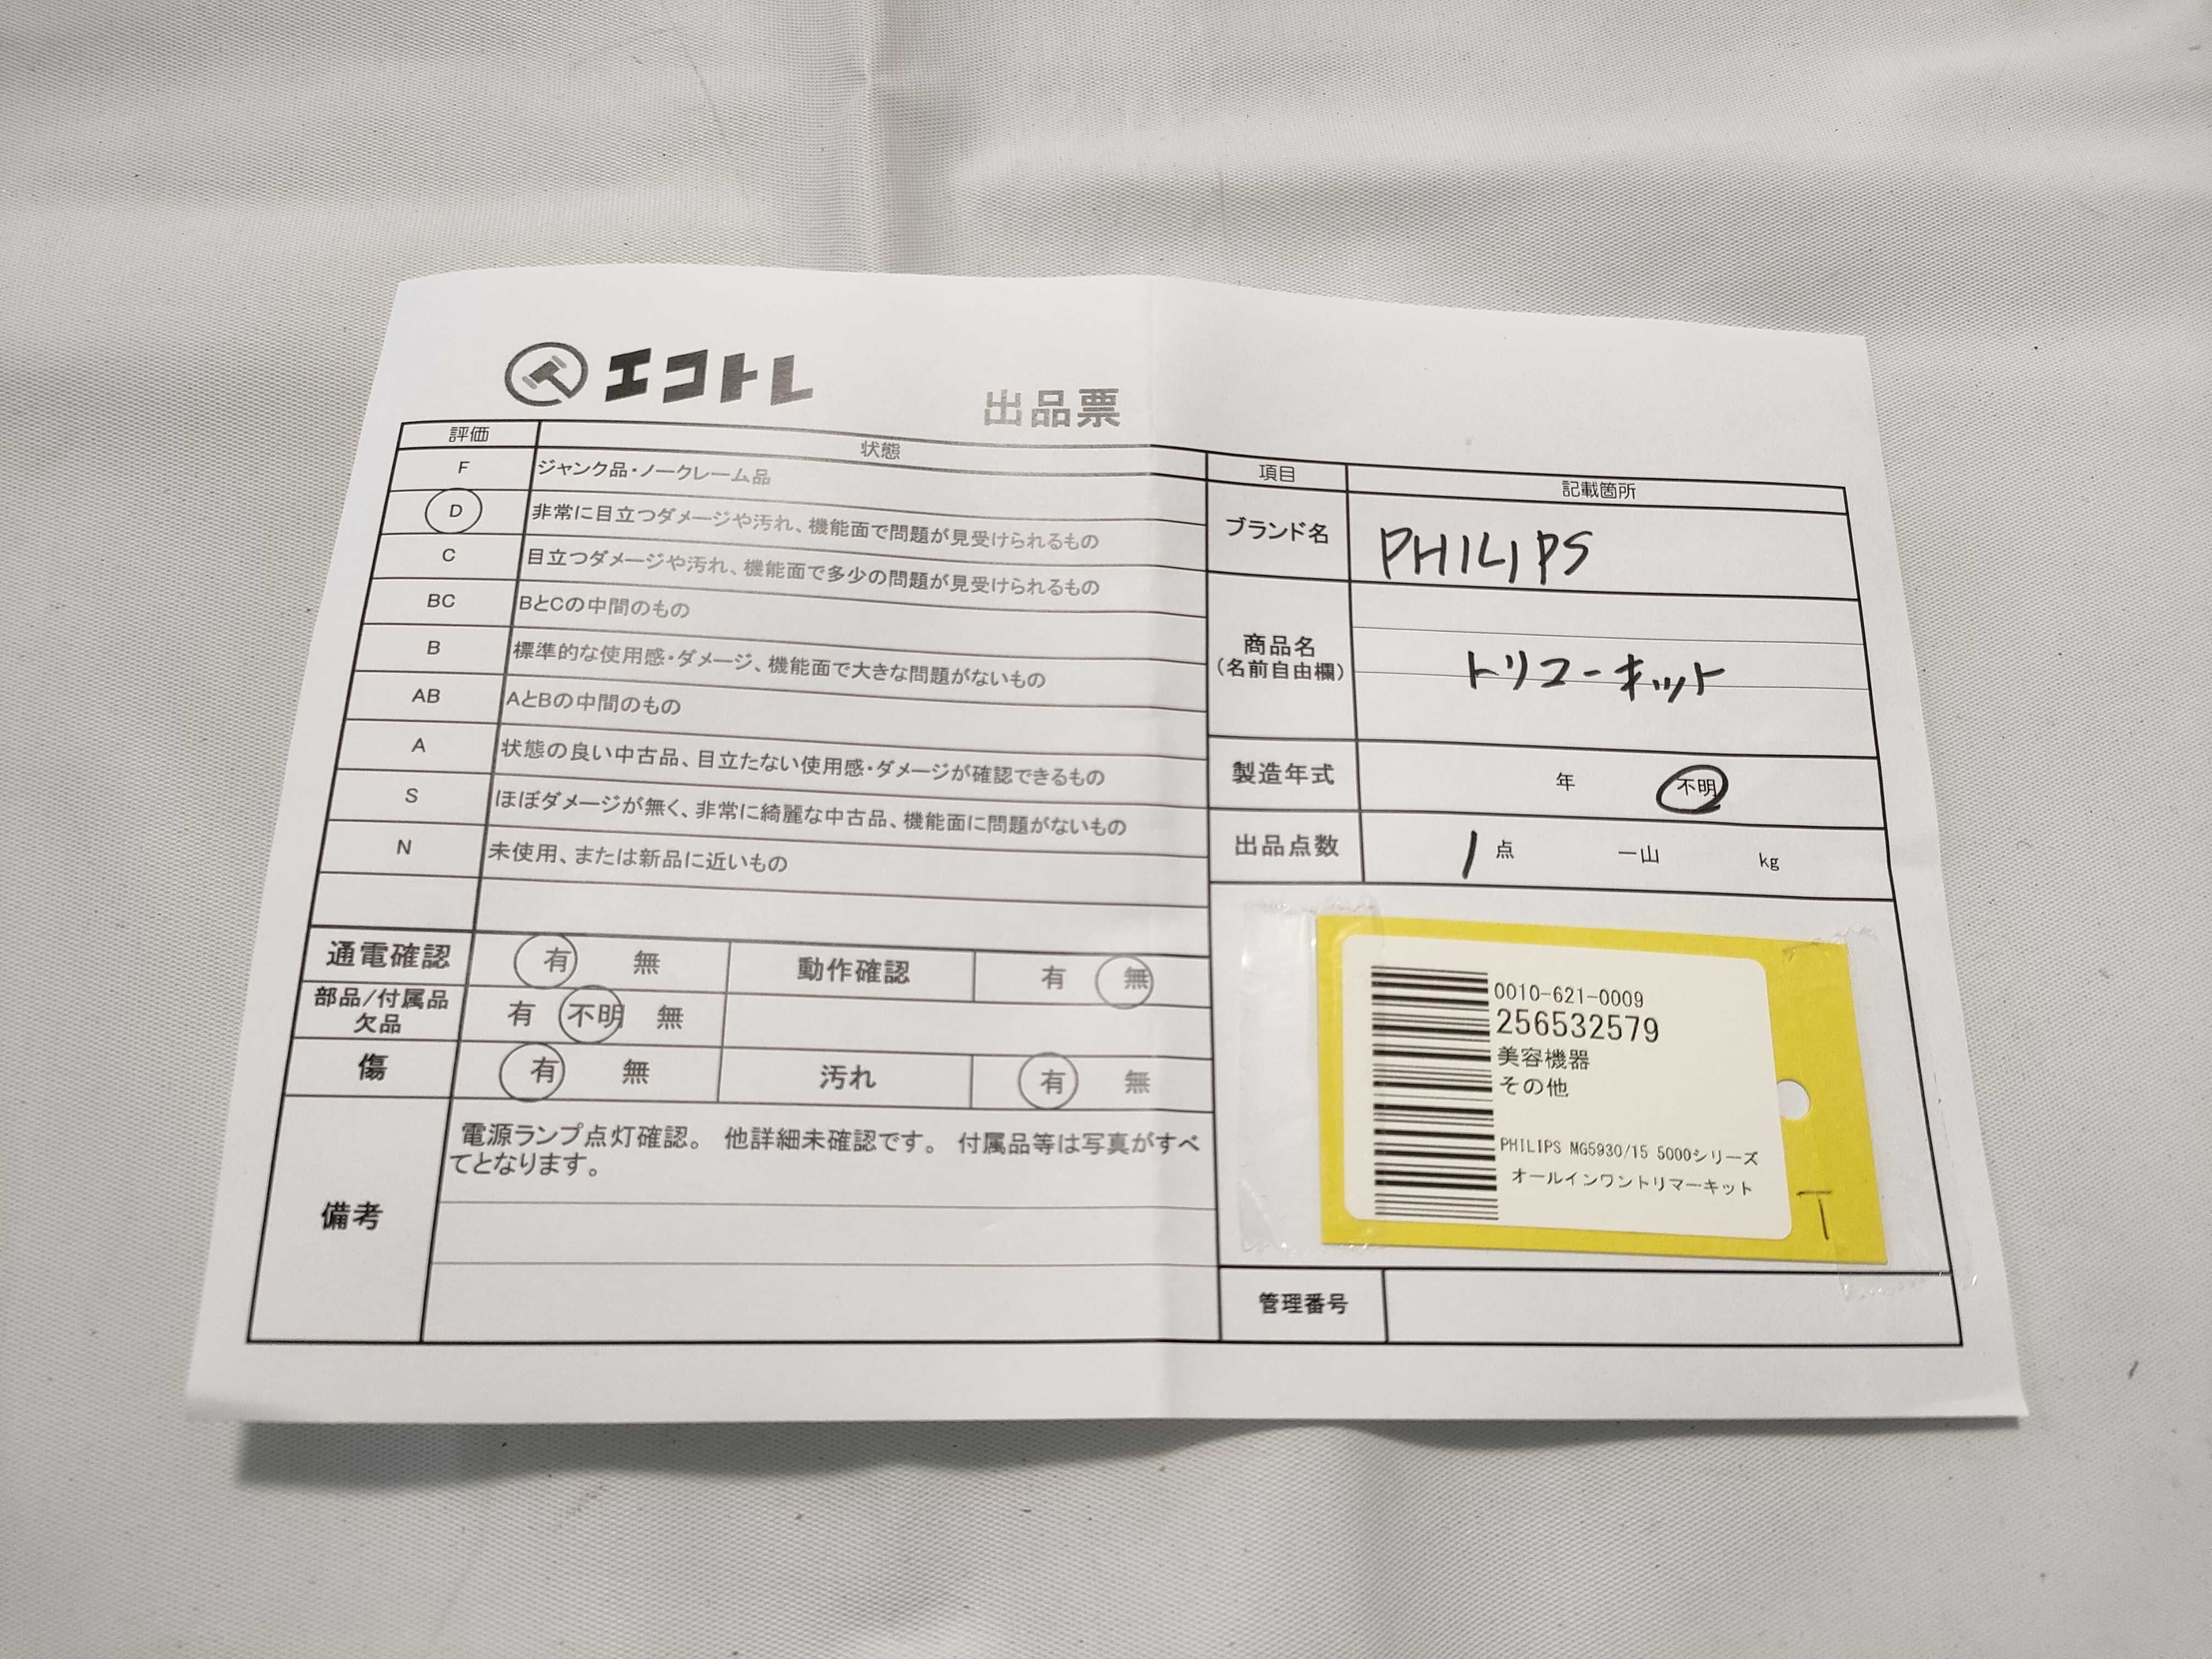 エコトレ
出品票
評価 状態
F ジャンク品・ノークレーム品
D 非常に目立つダメージや汚れ、機能面で問題が見受けられるもの
C 目立つダメージや汚れ、機能面で多少の問題が見受けられるもの
BC BとCの中間のもの
B 標準的な使用感・ダメージ、機能面で大きな問題がないもの
AB AとBの中間のもの
A 状態の良い中古品、目立たない使用感・ダメージが確認できるもの
S ほぼダメージが無く、非常に綺麗な中古品、機能面に問題がないもの
N 未使用、または新品に近いもの
通電確認 有 無 動作確認 有 無
部品/付属品
欠品 有 不明 無
傷 有 無 汚れ 有 無
備考
電源ランプ点灯確認。 他詳細未確認です。 付属品等は写真がすべ
てとなります。
項目 記載箇所
ブランド名 PHILIPS
商品名
(名前自由欄)
トリマーキット
製造年式 年 不明
出品点数 1 点 一山 kg
0010-621-0009
256532579
美容機器
その他
PHILIPS MG5930/15 5000シリーズ
オールインワントリマーキット
T
管理番号